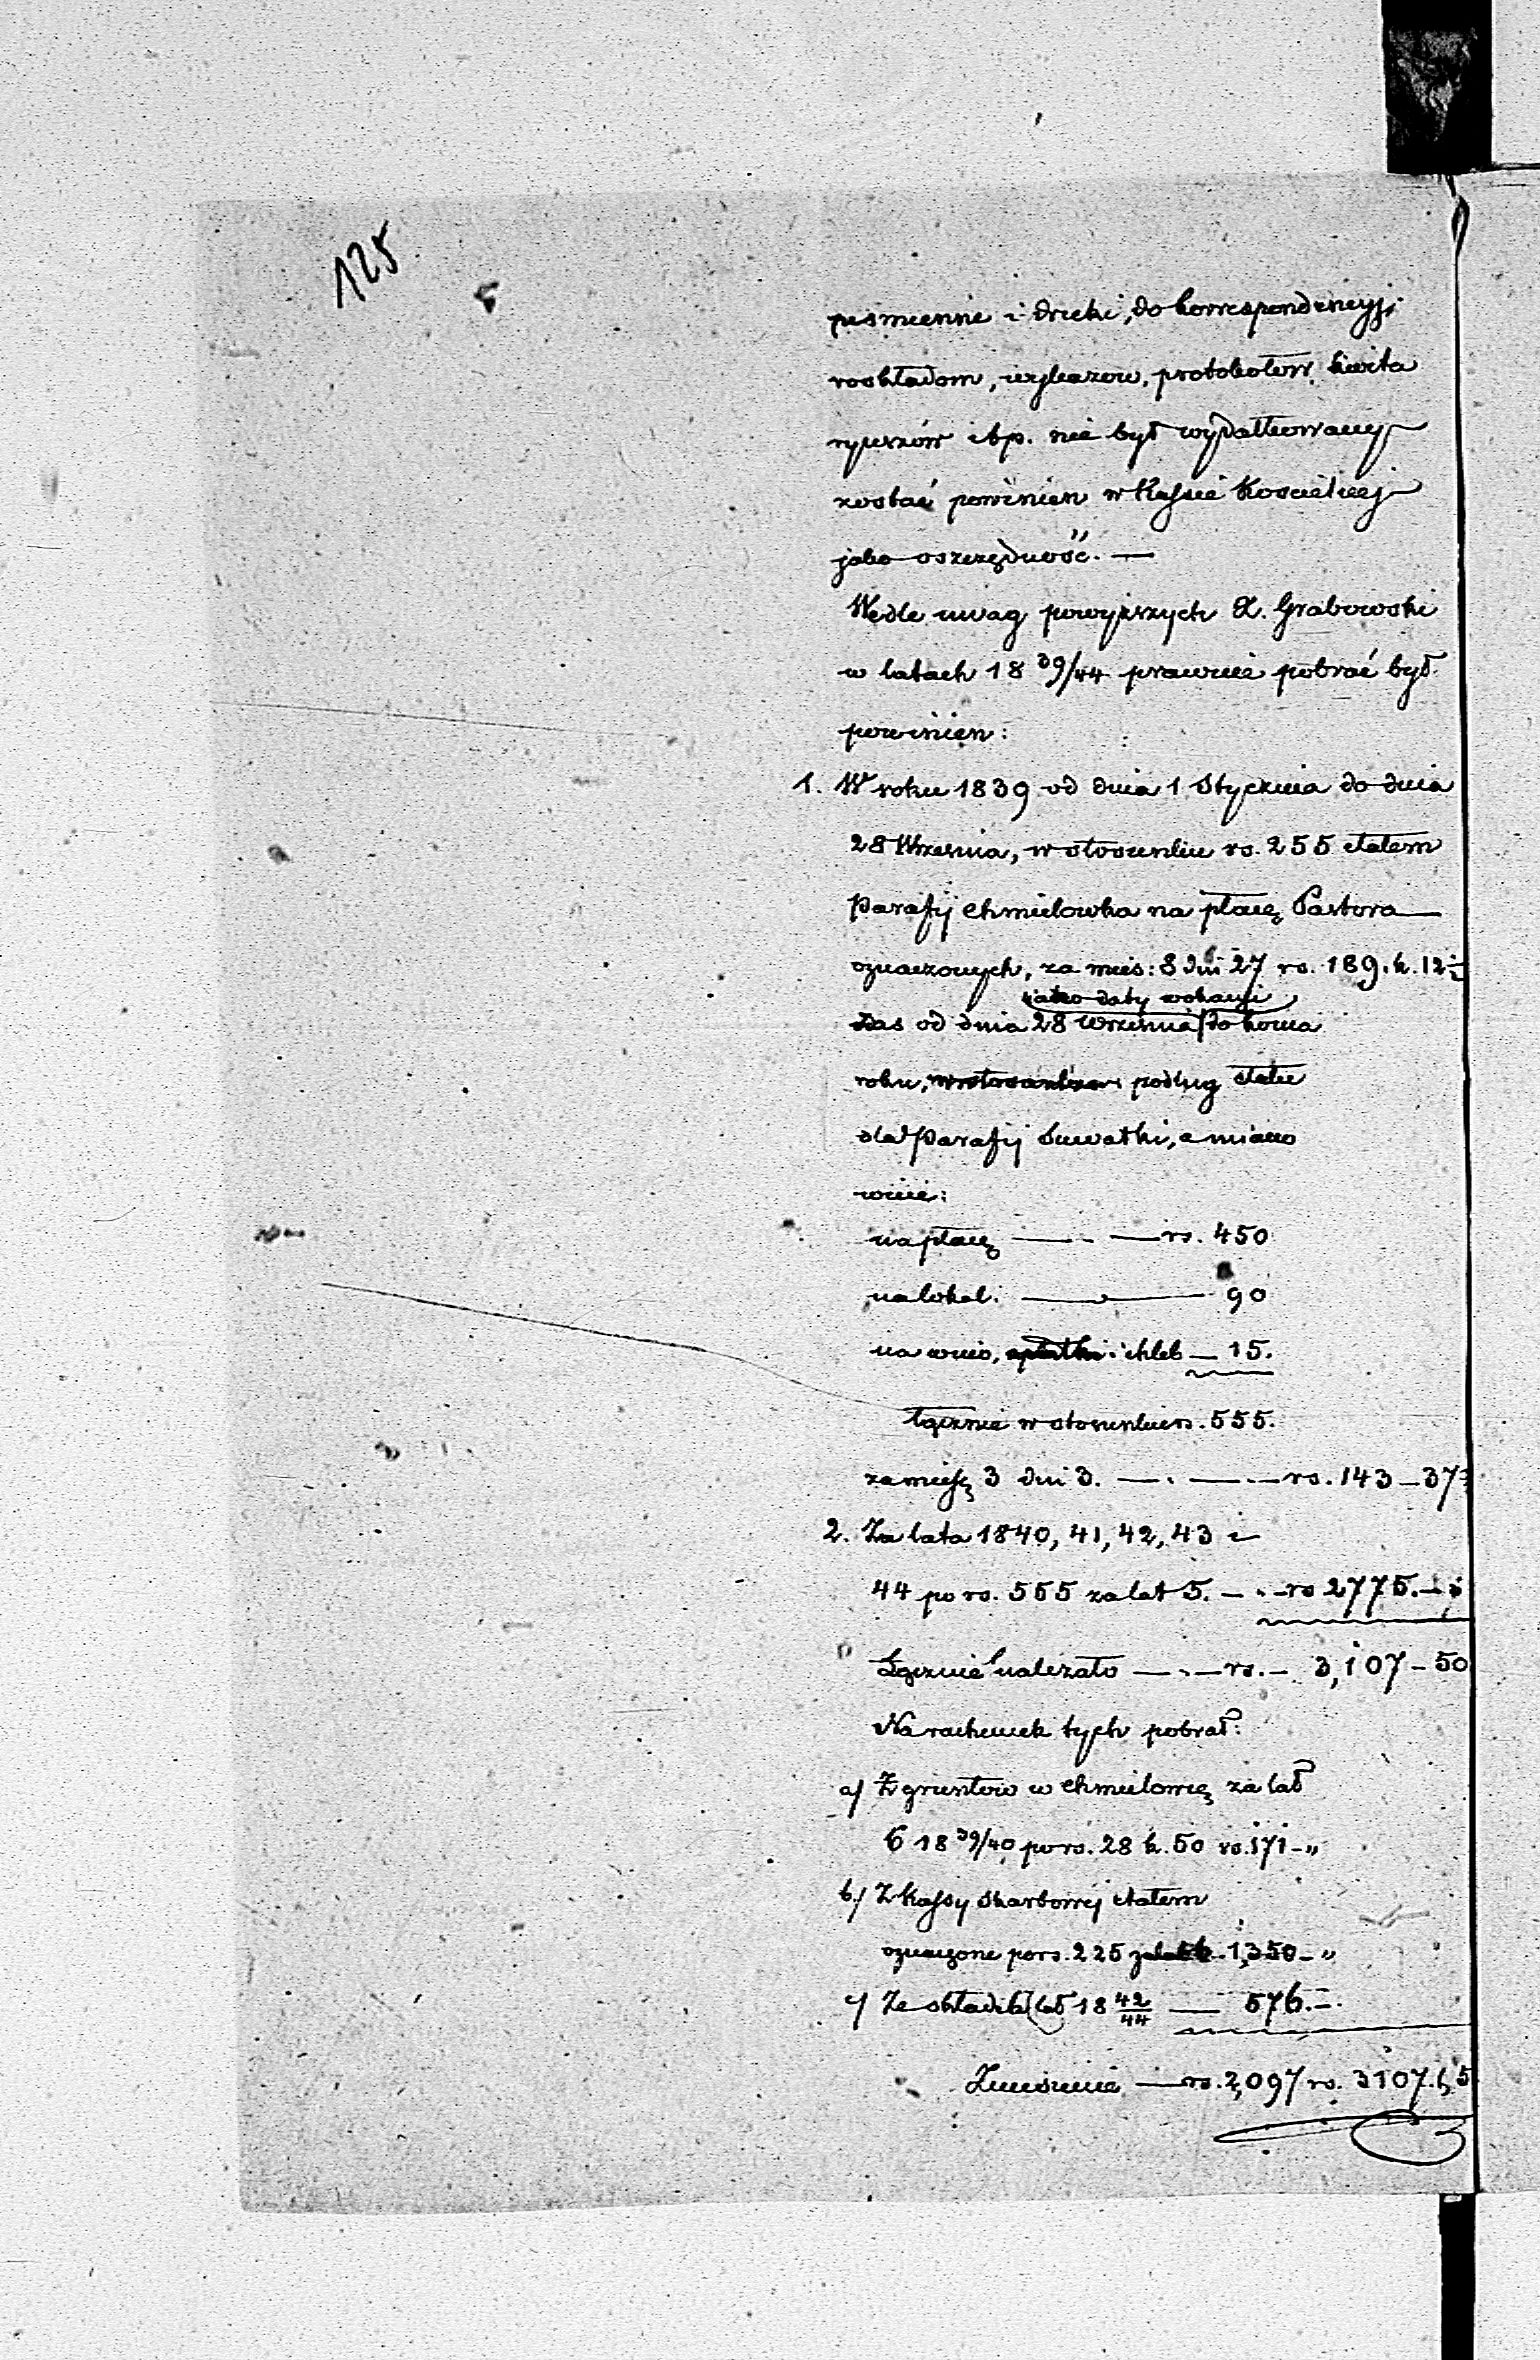 125
piśmienne i druki, do korrespondencyji
rozkładom, wykazów, protokołów, kwita
ryuszów itp. nie był wydatkowany
zostać powinien w Kassie Koscielnej
jako oszczędność. —
Wedle uwag powyższych X. Grabowski
w latach 18 39/44 prawnie pobrać był
powinien:
1. W roku 1839 od dnia 1 Stycznia do dnia
28 Września, w stosunku rs. 255 etatem
Parafij Chmielowka na płacę Pastora
oznaczonych, za mies: 8 dni 27 rs. 189. k. 12 ½
jako daty wokacyi
Zas od dnia 28 Września do konca
roku, podług etatu
dla Parafij Suwałki, a miano
wicie:
na płacę —— . —— rs. 450
na lokal. ———— 90
na wino, i chleb — 15.
łącznie w stosunku rs. 555.
za miesę 3 dni 3. — . — . — rs. 143 – 37
2. Za lata 1840, 41, 42, 43 i
44 po rs. 555 za lat 5. — . — rs 2775. —
Łącznie należało — . — rs. — 3,107 – 50
Na rachunek tych pobrał:
a/ Z gruntow w Chmielowcę za lat
6 18 39/40 po rs. 28 k. 50 rs. 171 – „
b/ Z Kassy skarbowej etatem
oznaczone po rs. 225 1,350 – „
c/ Ze składek lat 18 42/44 — 576. –
Zniesienie — rs. 2,097 rs. 3107. k. 5